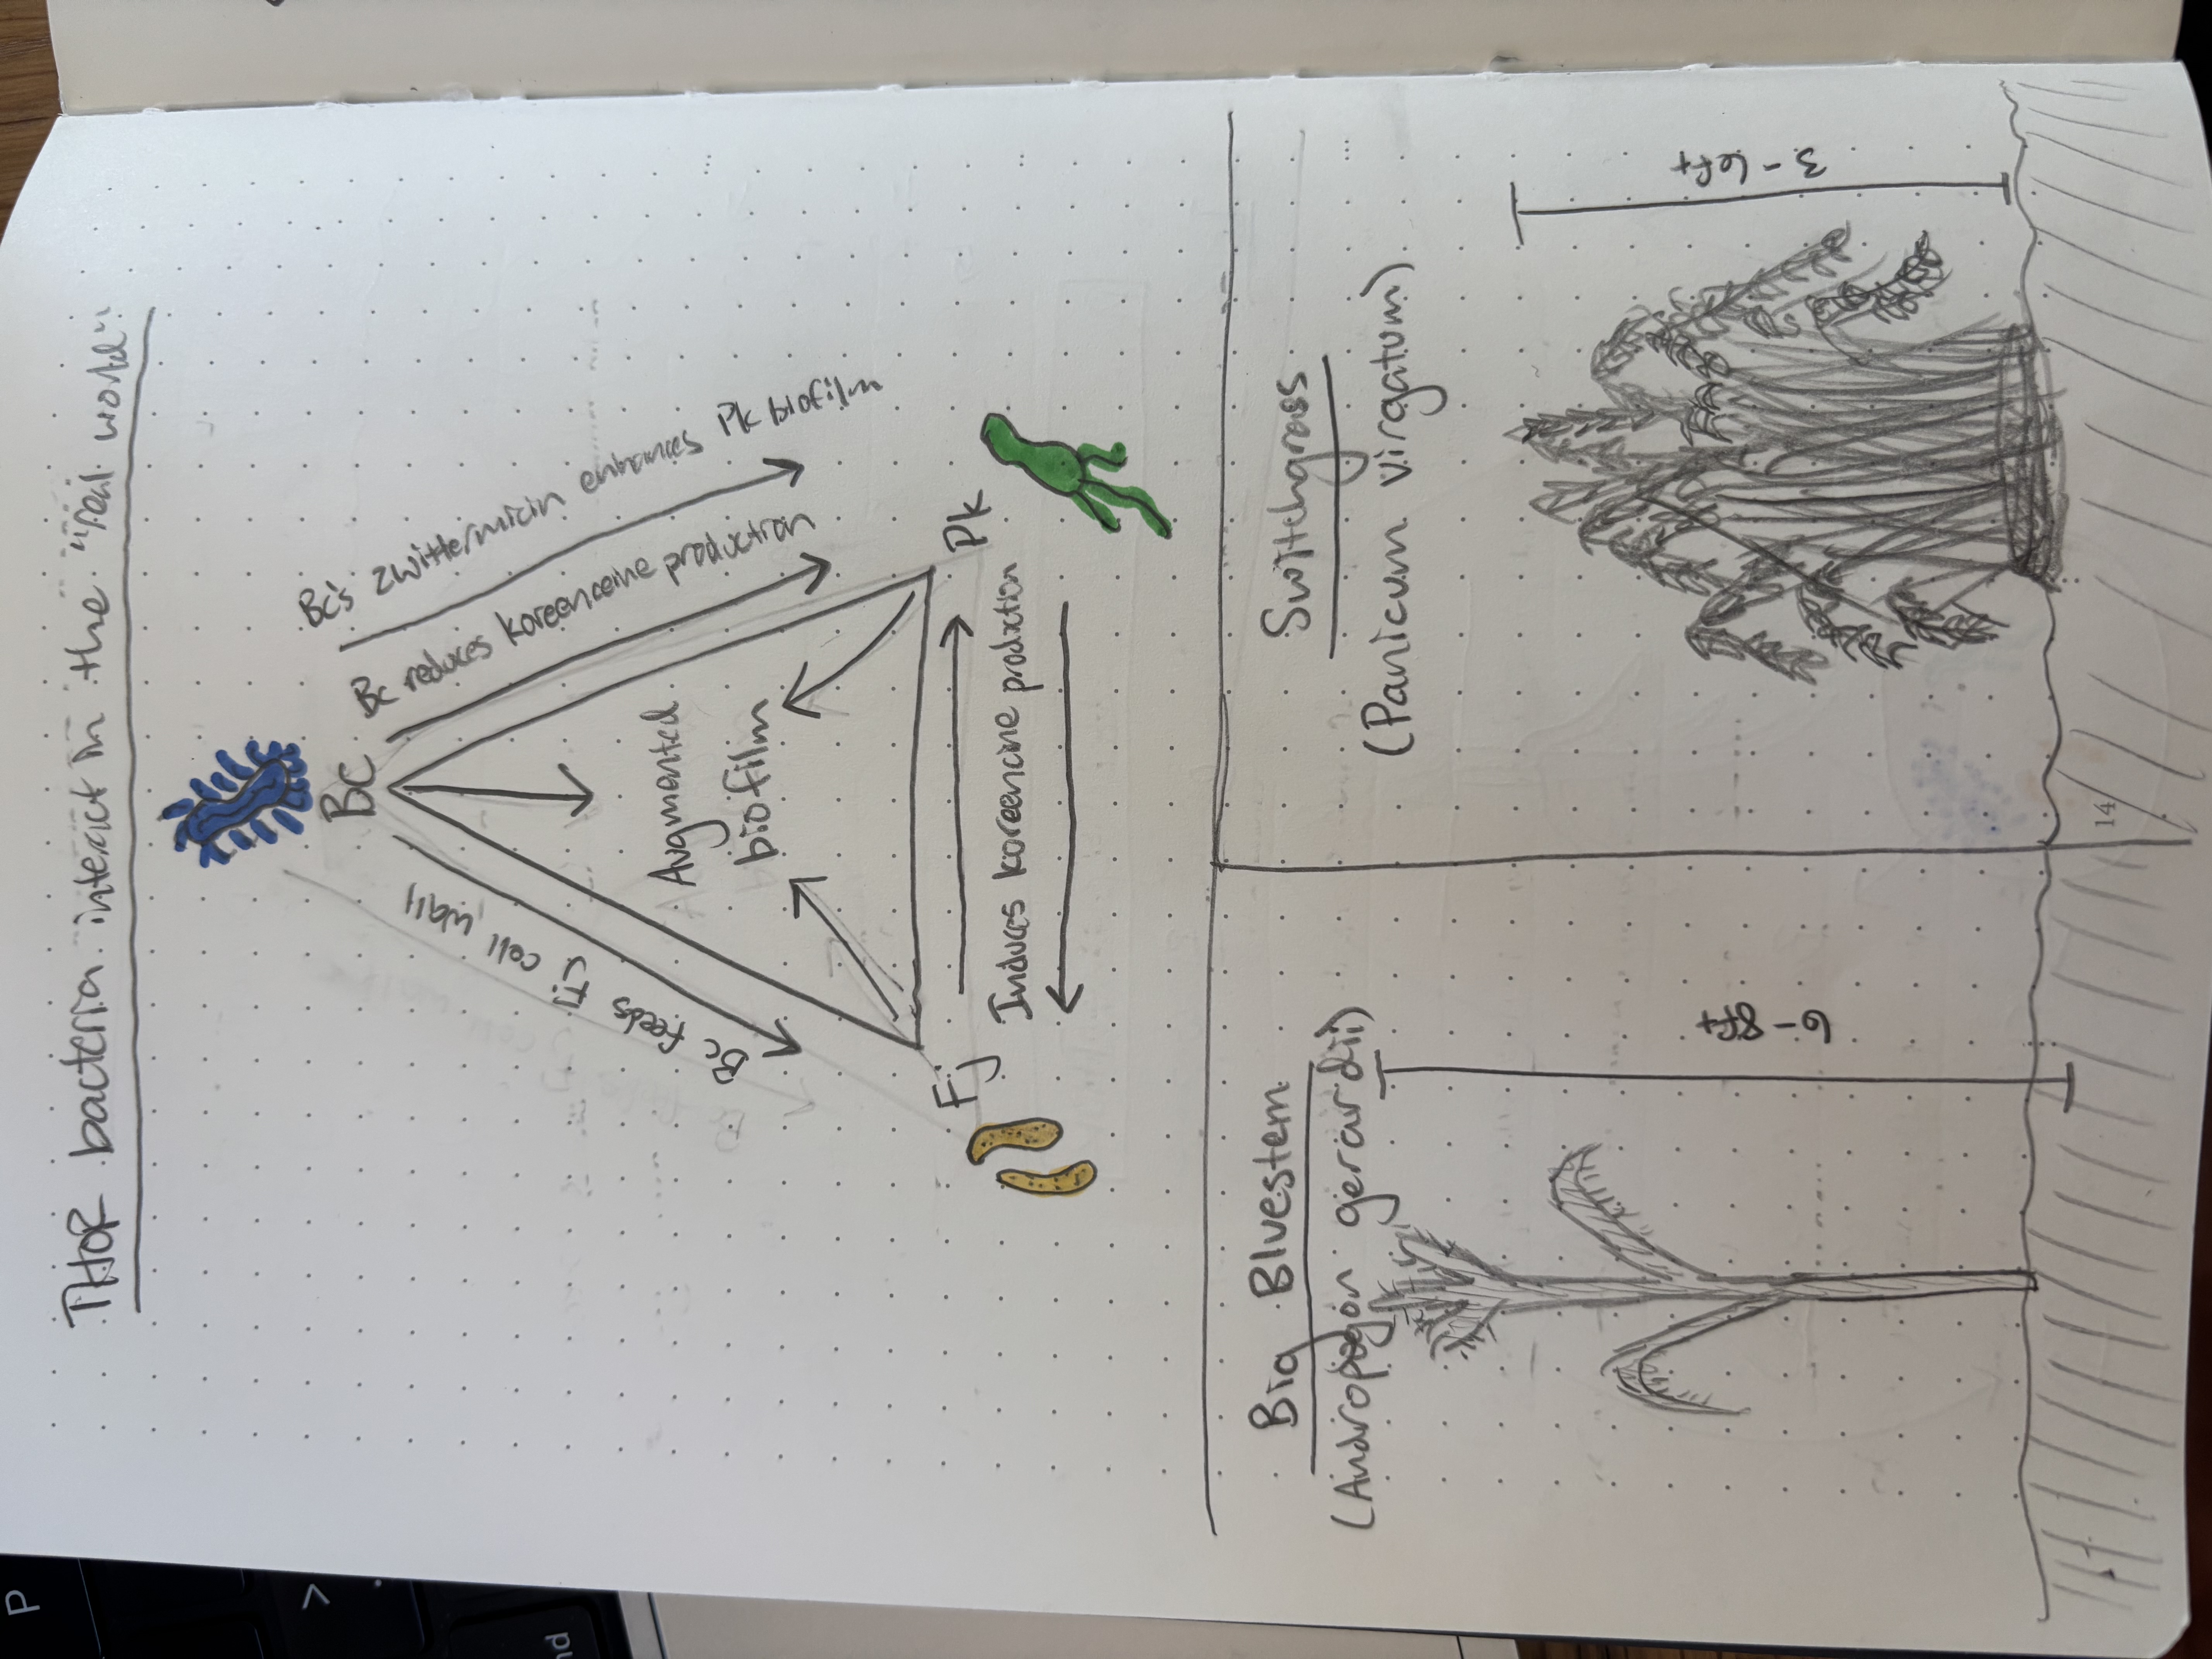 THOR bacteria interact in the "real world"
BC
Bc's zwittermicin enhances Pk biofilm
Bc reduces koreenceine production
Bc feeds Fj cell wall
Augmented
biofilm
Fj
Pk
Induces koreencine production
Big Bluestem
(Andropogon gerardii)
6-8ft
Switchgrass
(Panicum virgatum)
3-6ft
14
P
>
.
nd